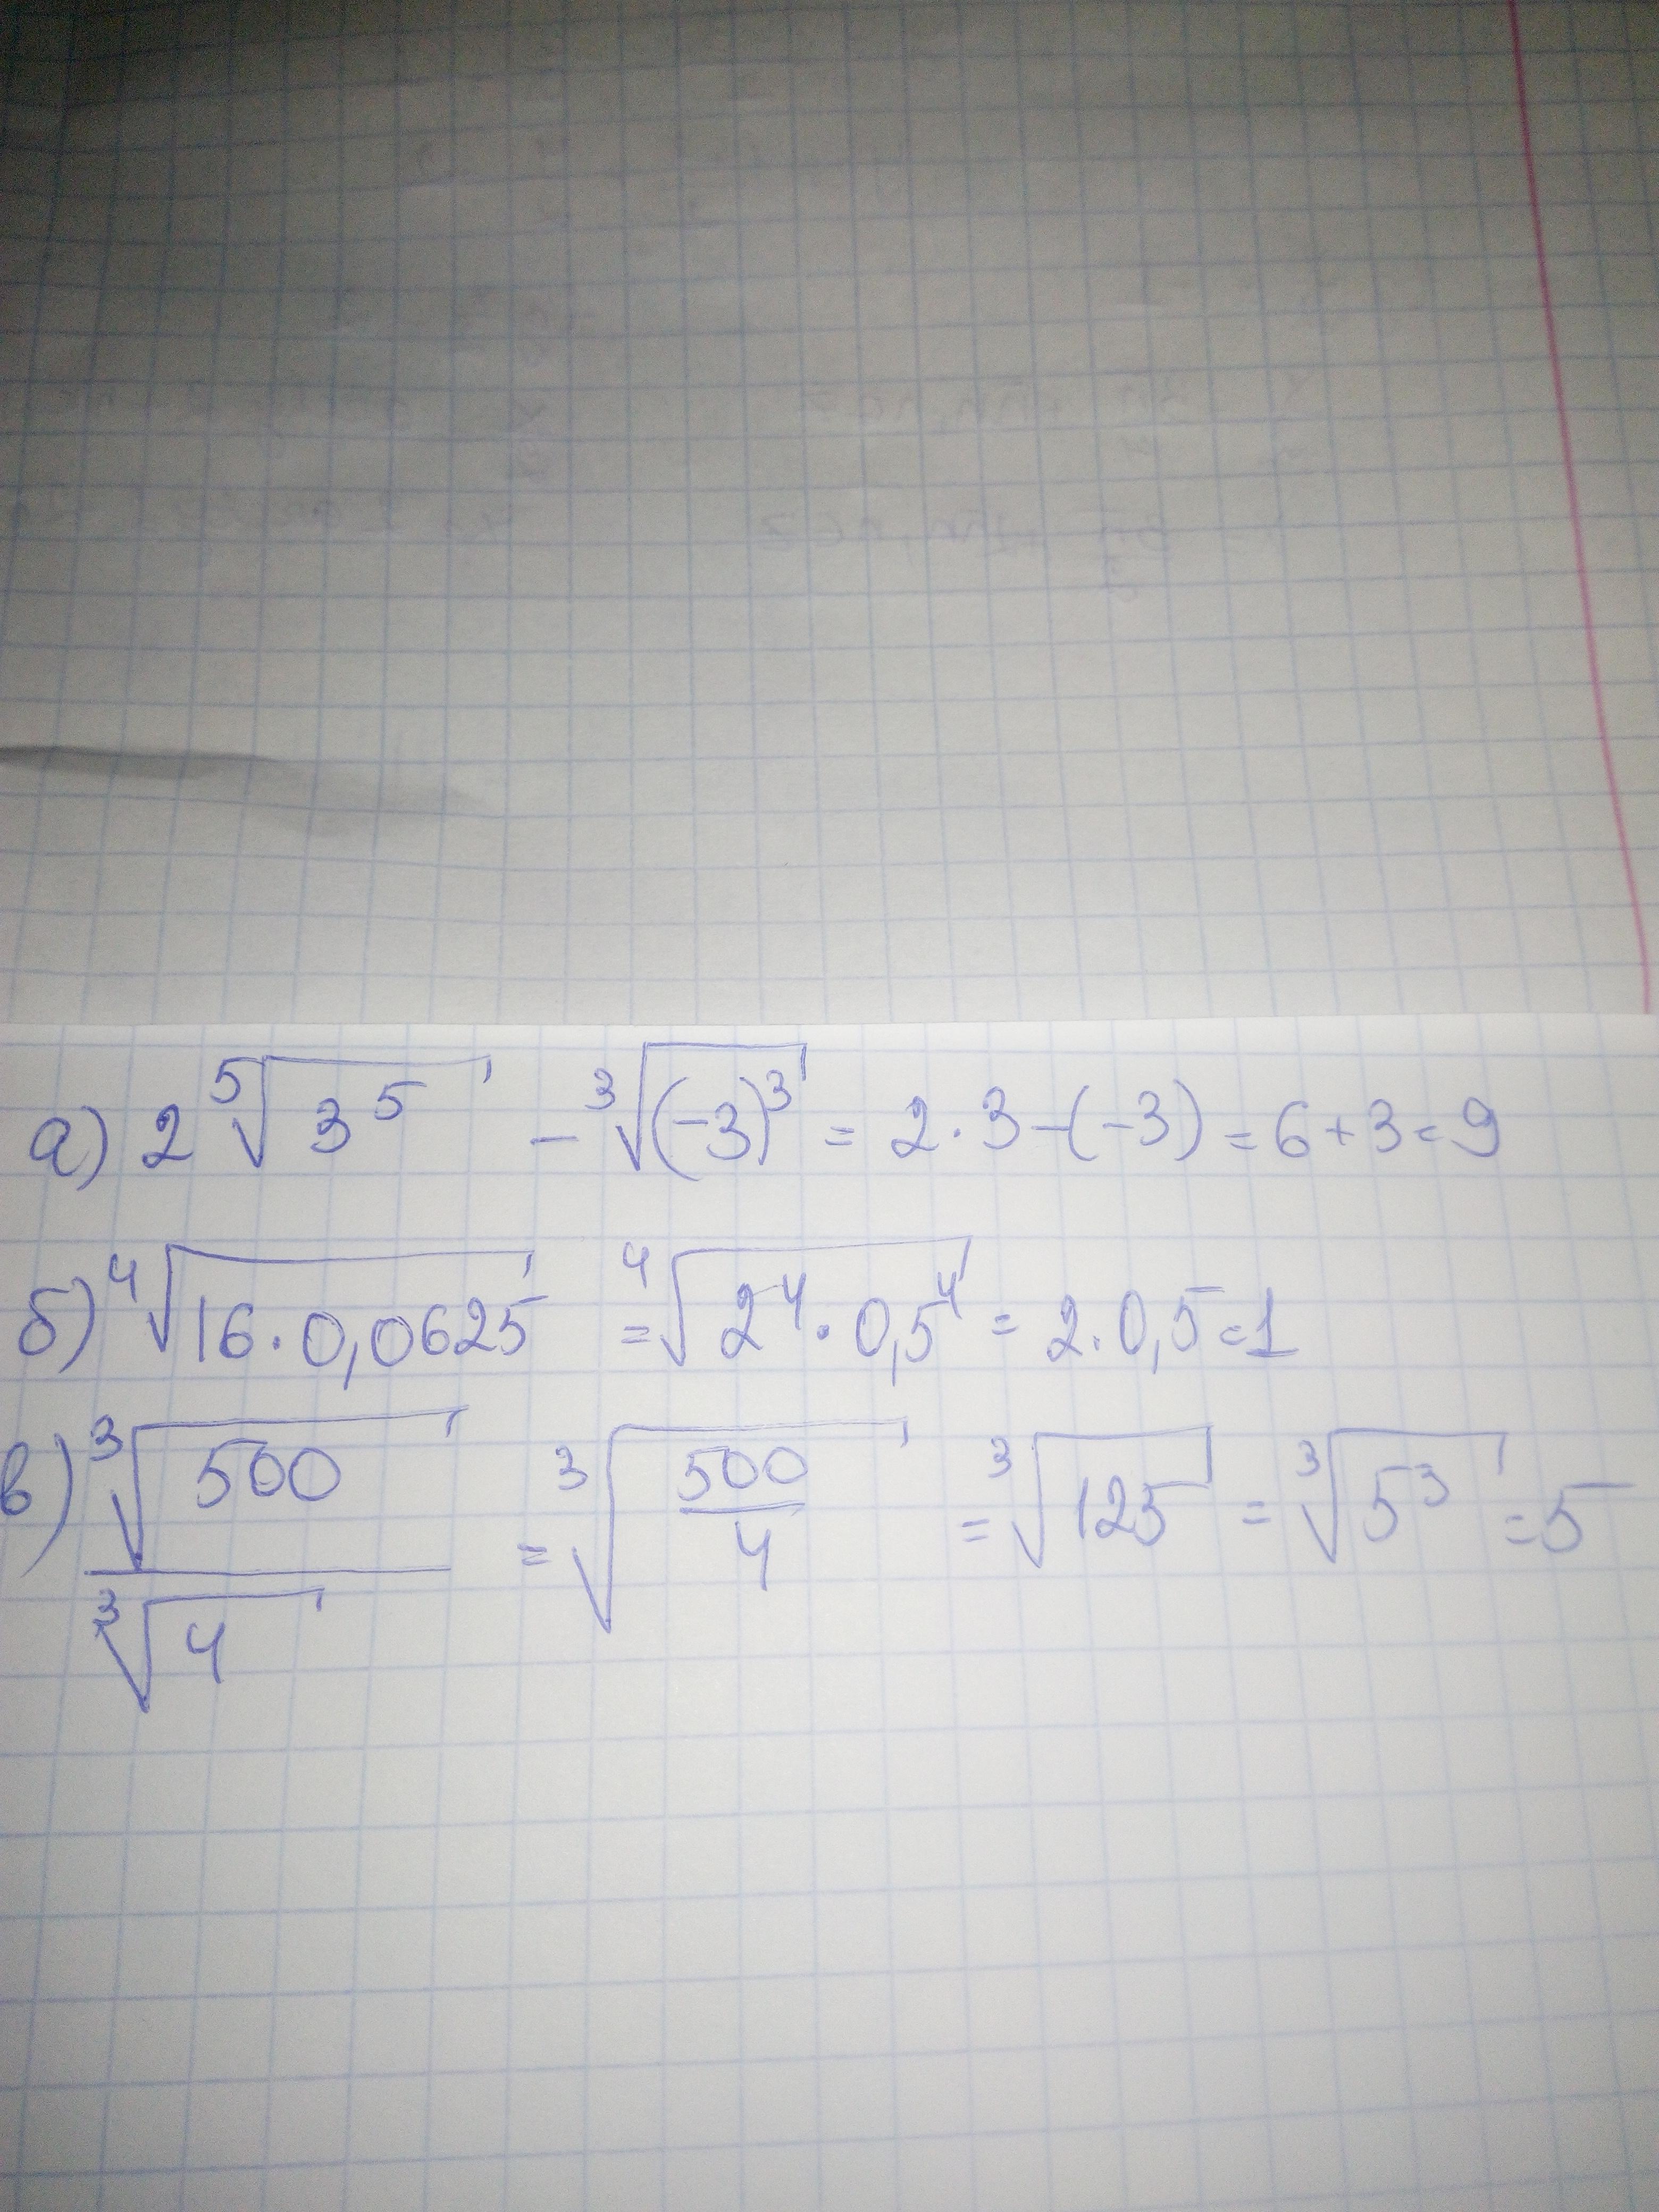 а) 2 ⁵√3⁵ - ³√(-3)³ = 2·3-(-3) = 6+3=9
б) ⁴√16·0,0625 = ⁴√2⁴·0,5⁴ = 2·0,5=1
в) ³√500 / ³√4 = ³√500/4 = ³√125 = ³√5³ = 5